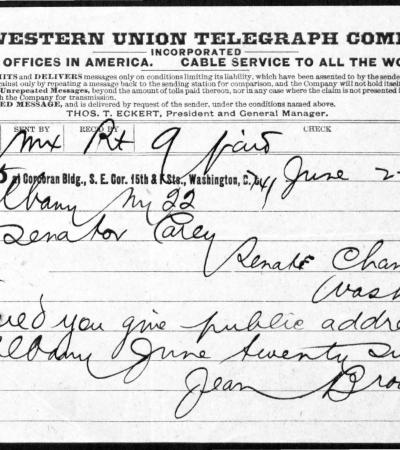 WESTERN UNION TELEGRAPH COMP
INCORPORATED
OFFICES IN AMERICA. CABLE SERVICE TO ALL THE WO
MITS and DELIVERS messages only on conditions limiting its liability, which have been assented to by the sende
against only by repeating a message back to the sending station for comparison, and the Company will not hold itself
Unrepeated Messages, beyond the amount of tolls paid thereon, nor in any case where the claim is not presented i
the Company for transmission.
ED MESSAGE, and is delivered by request of the sender, under the conditions named above.
THOS. T. ECKERT, President and General Manager.
SENT BY REC'D BY CHECK
9 paid
at Corcoran Bldg., S. E. Cor. 15th & F Sts., Washington, D. C. June 2
lbany NY 22
Senator Carey
Senate Cham
Wash
you give public addre
lbany June twenty
Jean Bro